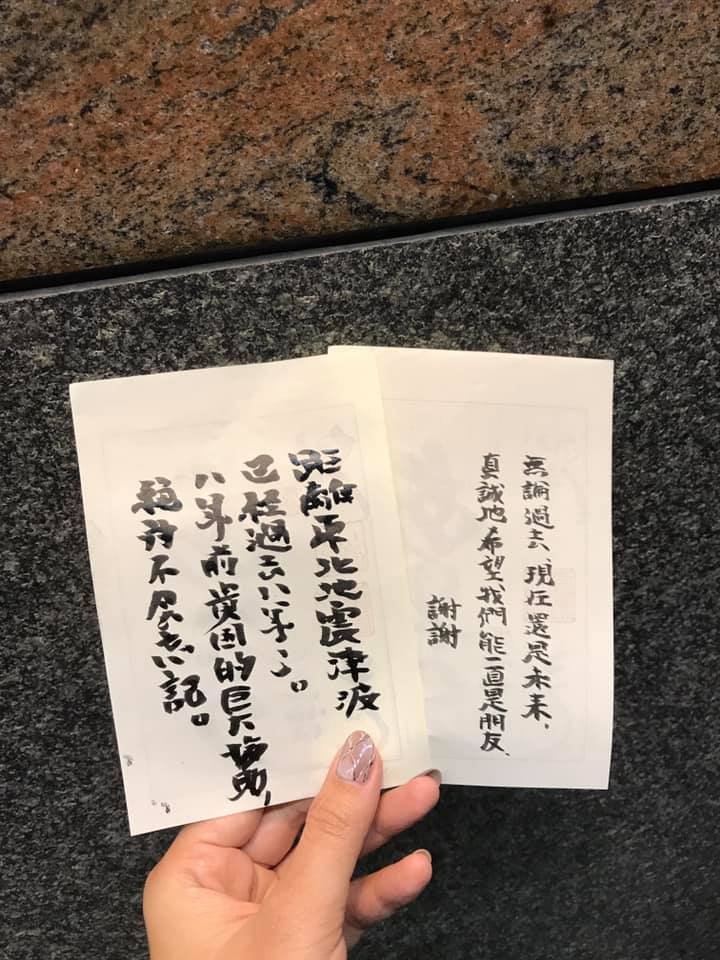 距離东北地震津波
已经過去八年了。
八年前貴国的巨大協助,
絶対不会忘記。
無論過去、現在還是未来,
真誠地希望我們能一直是朋友、
謝謝